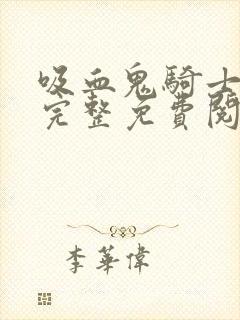 吸血鬼騎士
完整免費閱
李華偉